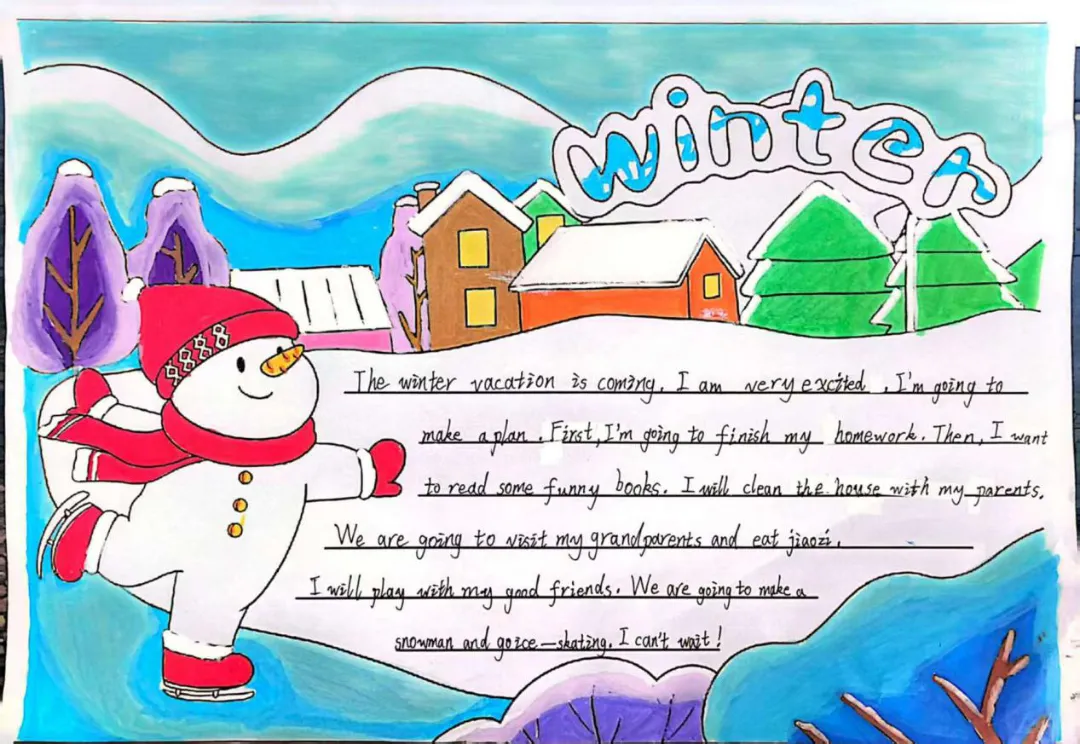 winter
The winter vacation is coming. I am very excited. I'm going to
make a plan. First, I'm going to finish my homework. Then, I want
to read some funny books. I will clean the house with my parents.
We are going to visit my grandparents and eat jiaozi.
I will play with my good friends. We are going to make a
snowman and go ice-skating. I can't wait!